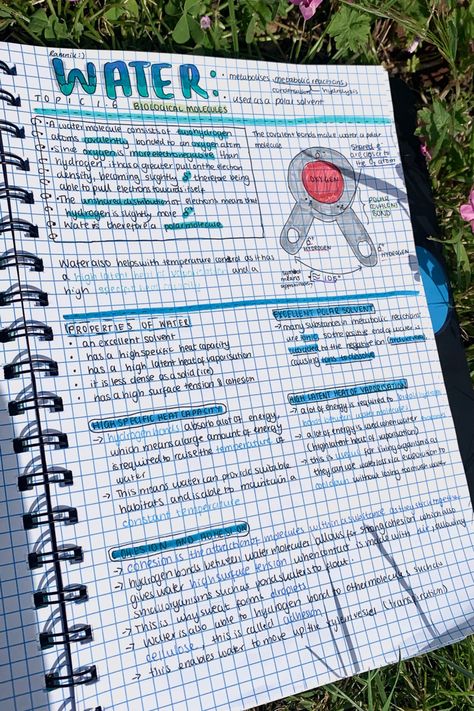 WATER:
: metabolises metabolic reactions,
condensation hydrolysis
used as a polar solvent
TOPIC 1.6 BIOLOGICAL MOLECULES
• A water molecule consists of two hydrogen
atoms covalently bonded to an oxygen atom
• Since oxygen is more electronegative than
hydrogen, it has a greater pull on the electron
density, becoming slightly δ⁻ therefore being
able to pull electrons towards itself.
• The uneven distribution of electrons means that
hydrogen is slightly more δ⁺
• Water is therefore a polar molecule
The covalent bonds make water a polar
molecule
OXYGEN
POLAR
COVALENT
BOND
δ⁺
HYDROGEN
δ⁺
HYDROGEN
≈ 105°
Water also helps with temperature control as it has
a high latent heat of vaporisation and a
high specific heat capacity
PROPERTIES OF WATER
• an excellent solvent
• has a high specific heat capacity
• has a high latent heat of vaporisation
• it is less dense as a solid (ice)
• has a high surface tension & cohesion
EXCELLENT POLAR SOLVENT
→ many substances in metabolic reactions
are ionic, so the positive end of water is
attracted to the negative ion
causing ions to dissolve
HIGH SPECIFIC HEAT CAPACITY
→ hydrogen bonds absorb a lot of energy,
which means a large amount of energy
is required to raise the temperature of
water
→ This means water can provide suitable
habitats and is able to maintain a
constant temperature
HIGH LATENT HEAT OF VAPORISATION
→ a lot of energy is required to break hydrogen
bonds between water molecules
→ a lot of energy is used when water evaporates
(High latent heat of vaporisation)
→ this is useful for living organisms as
they can use water loss via evaporation to
cool down without losing too much water
COHESION AND ADHESION
→ cohesion is the attraction of molecules within a substance
→ hydrogen bonds between water molecules allows for strong cohesion which also
gives water high surface tension when contact is made with air, allowing
small organisms such as pond skaters to float.
→ This is why sweat forms droplets
→ Water is also able to hydrogen bond to other molecules such as
cellulose, this is called adhesion
→ this enables water to move up the xylem vessel (transpiration)